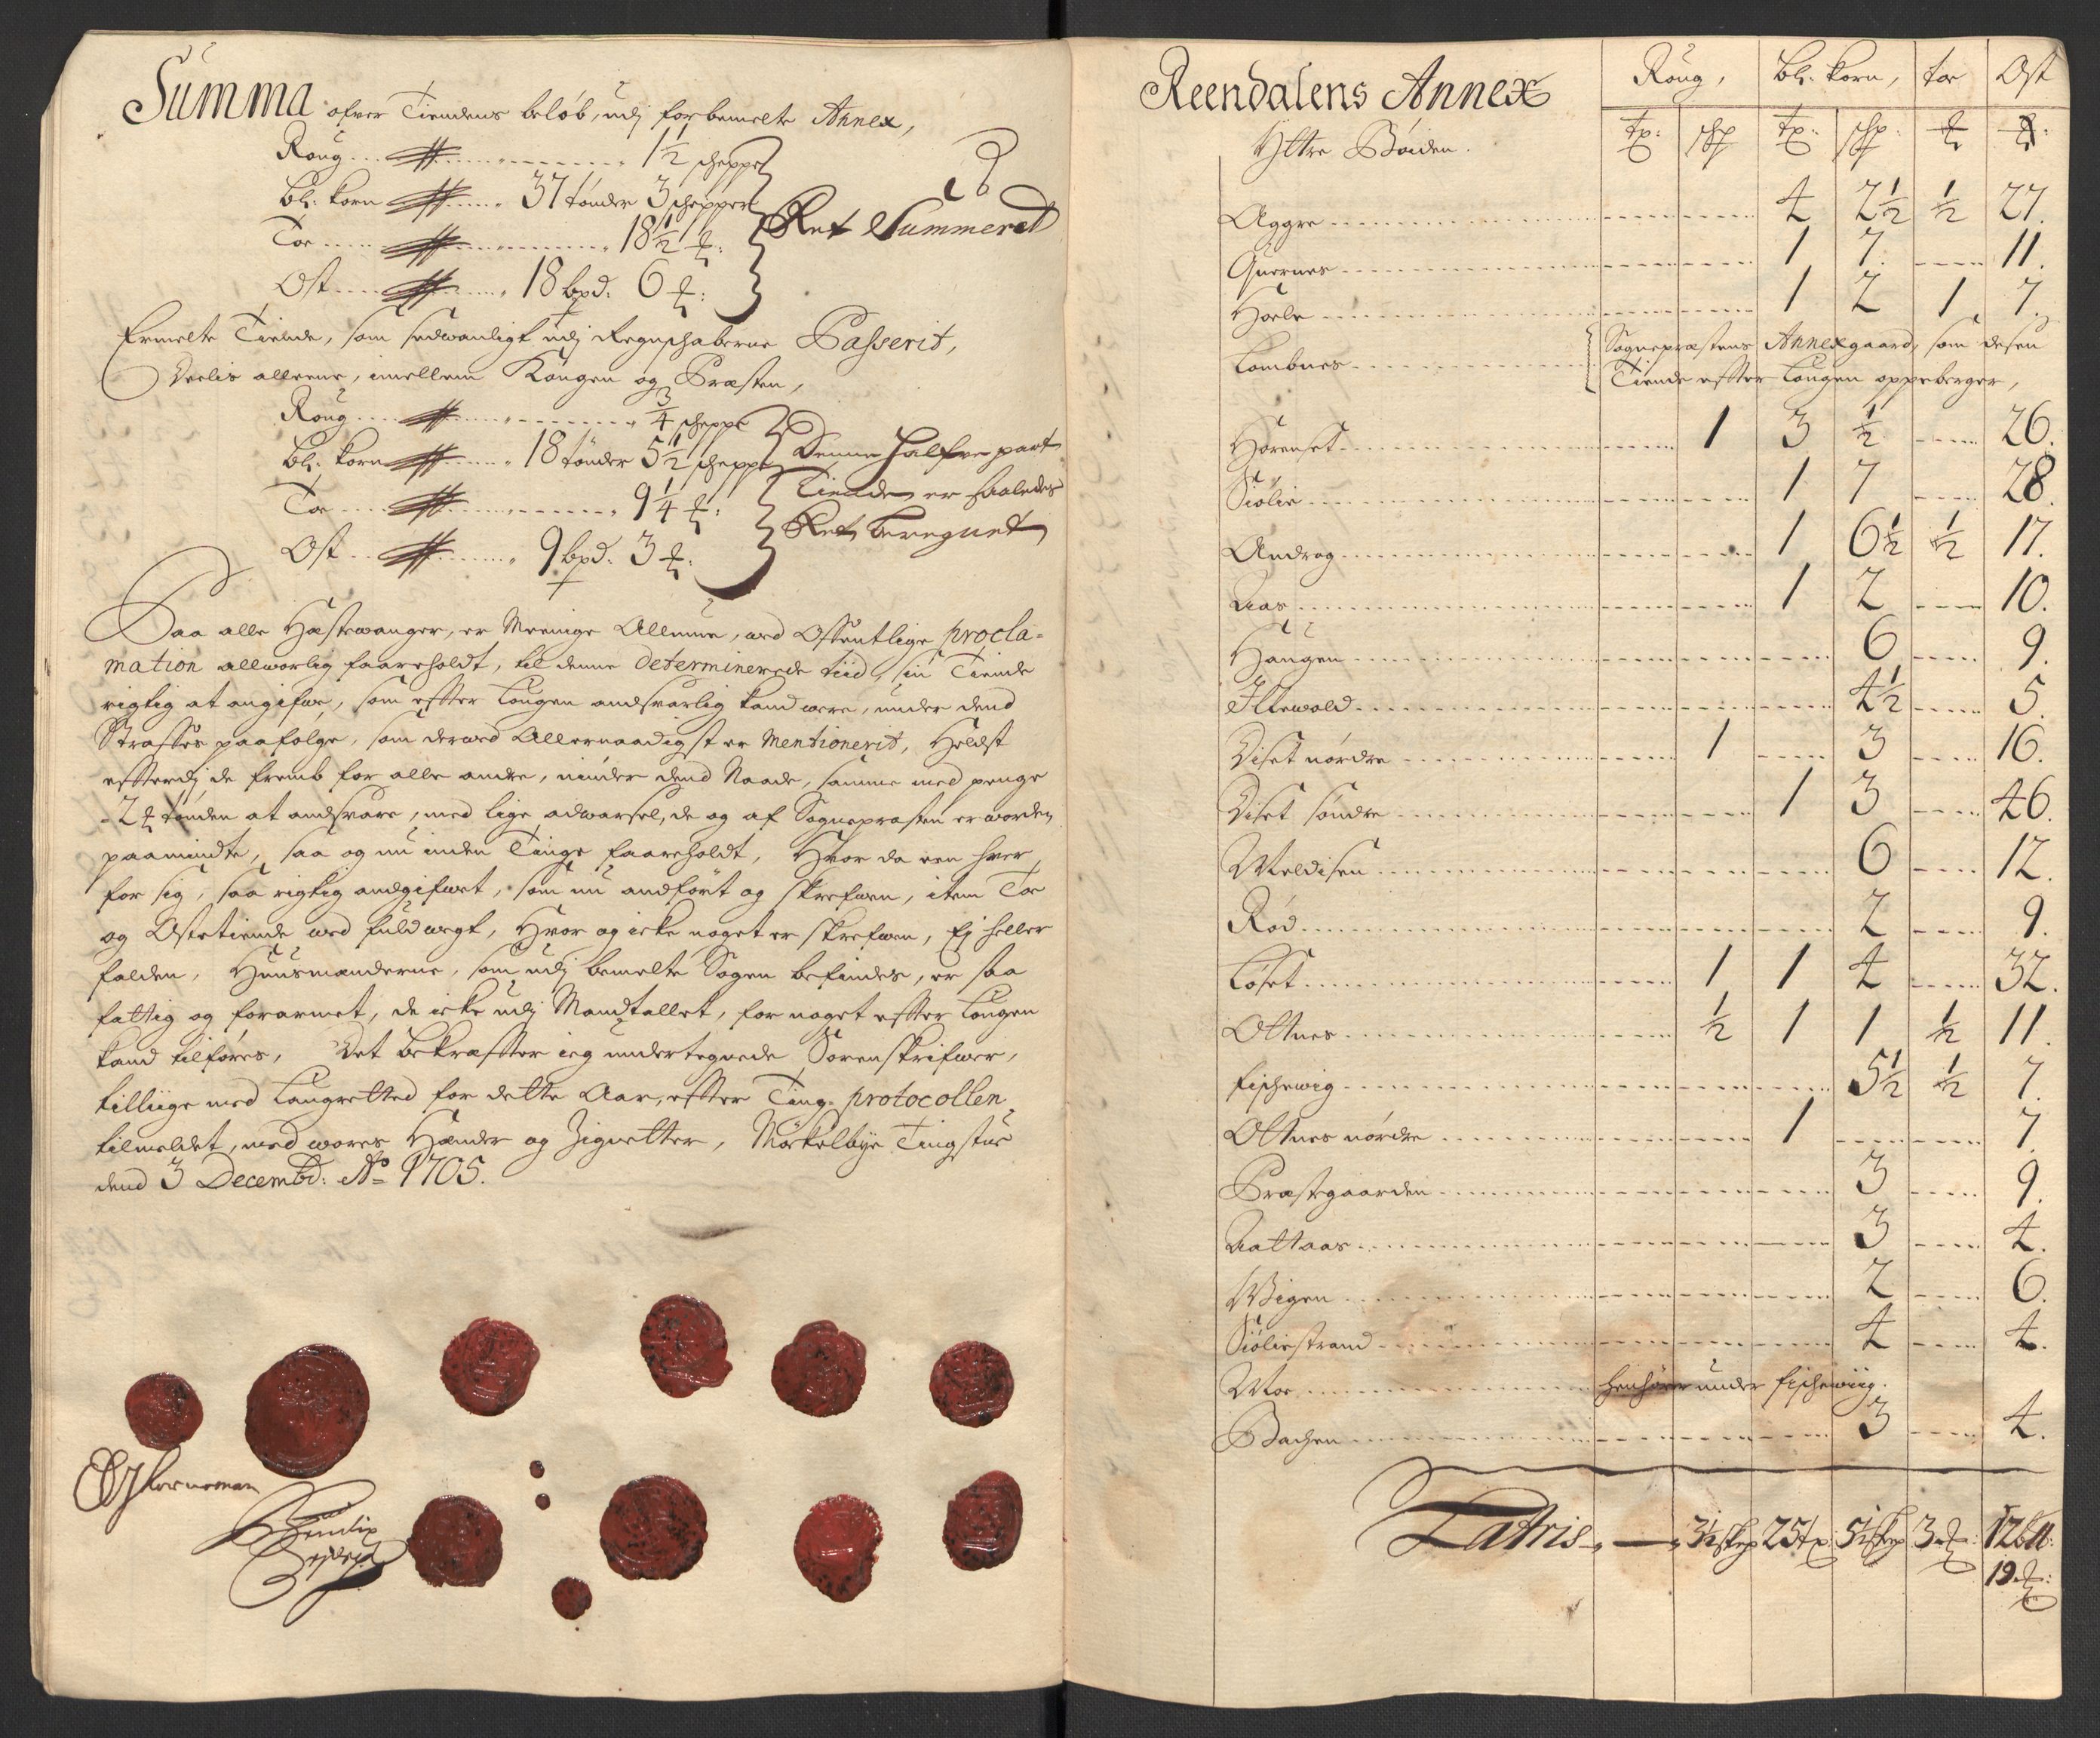 Summa ofver Tiendens beløb, udj forbemelte Annex,
Roug ... 1½ schepper
bl: korn ... 37 tønder 3 schepper
Toe ... 18½ ℔:
Ost ... 18 bpd: 6 ℔:
Ret Summeret
Ermelte Tiende, som sædwanligt udj Regnschaberne Passerit,
Deelis alleene, imellem Kongen og Præsten,
Roug ... ¾ scheppe
bl: korn ... 18 tønder 5½ scheppe
Toe ... 9¼ ℔:
Ost ... 9 bpd: 3 ℔:
Denne halfve part
Tienden er saaledes
Ret beregnet
Saa alle Hæstwanger, er Meenige Allmue, ved Offentlige procla-
mation allvorlig faareholdt, til denne determinerede tiid, sin Tiende
rigtig at angifwe, som efter Lougen andsvarlig kand were, under dend
Straffes paafølge, som derved Allernaadigst er Mentionerit, Heldst
efterdj de fremb for alle andre, niuder dend Naade, samme med penge
2 ℔ tønden at andsvare, med lige adwarsel, de og af Sognepræsten er worden
paamindte, saa og nu inden Tinge faareholdt, Hvor da een hver
for sig, saa rigtig andgifwet, som nu andført og skrefwen, item Toe
og Ostetiende ved fuld vegt, Hvor og icke noget er skrefwen, Ej heller
falden, Huusmænderne, som udj bemelte Sogen befindes, er saa
fattig og forarmet, de icke udj Mandtallet, for noget efter Lougen
kand tilføres, Det bekræfter ieg undertegnede Sorenskrifwer,
tilliige med Laugretted for dette Aar, efter Ting-protocollen
tilmeldet, med wores Hænder og Zignetter, Mørkelbye Tingstue
dend 3 Decembd: Ao 1705.
Reendalens Annex
Roug, bl: korn, toe Ost
Yttre Bøiden. tø: schp tø: schp: ℔ ℔:
Aggre ... 4 2½ ½ 27.
Quernes ... 1 7. ... 11.
Hoele ... 1 2 1 7.
Lombnes ... Sognepræstens Annexgaard, som desen
Tiende efter Lougen oppeberger,
Hornset ... 1 3 ½ ... 26.
Siølie ... 1 7 ... 28.
Androg ... 1 6½ ½ 17.
Aas ... 1 2 ... 10.
Haugen ... 6 ... 9.
Iltewold ... 4½ ... 5.
Diset nørdre ... 1 ... 3 ... 16.
Diset søndre ... 1 3 ... 46.
Meldisen ... 6 ... 12.
Rød ... 2 ... 9.
Løset ... 1 1 4 ... 32.
Ottnes ... ½ 1 1 ½ 11.
fischewig ... 5½ ½ 7.
Ottnes nørdre ... 1 ... 7.
Præstgaarden ... 3 ... 9.
Aattaas ... 3 ... 4.
Wigen ... 2 ... 6.
Siøliestrand ... 4 ... 4.
Moe ... henhører under fischewiig.
Bachen ... 3 ... 4.
Lattris — 3½ skp 25 tø: 5½ skp 3 ℔: 12 b℔:
19 ℔: